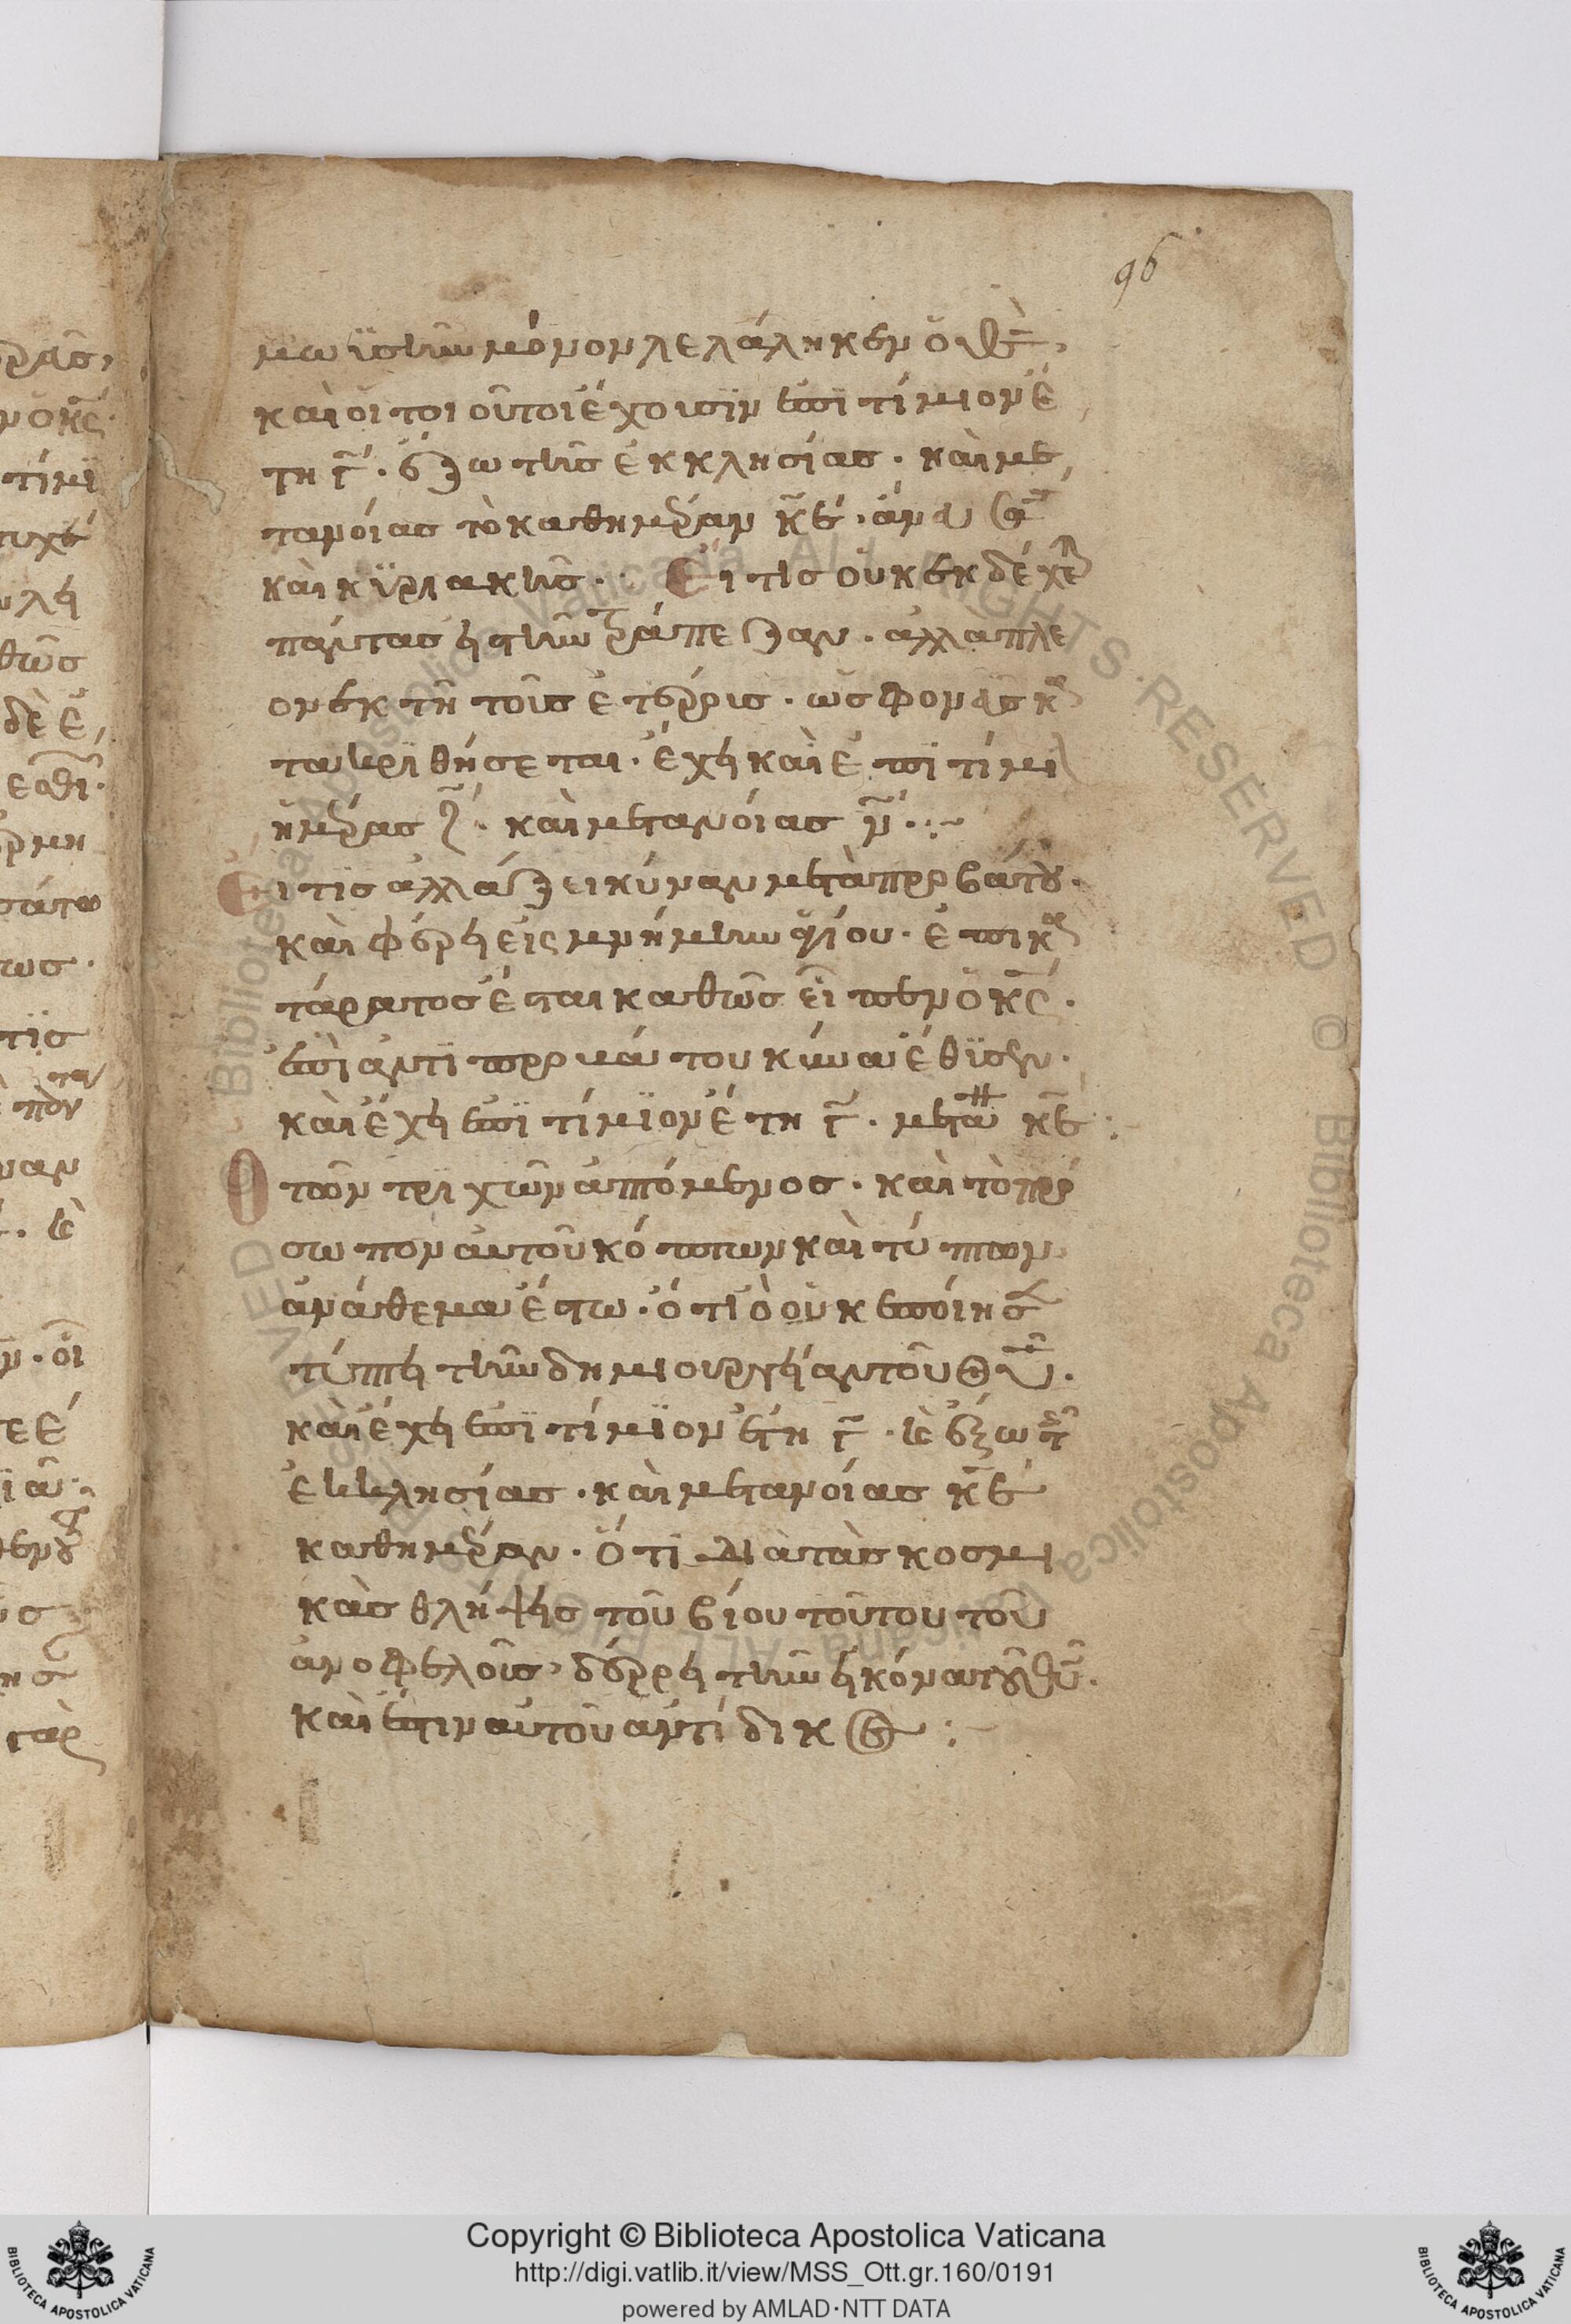 96
μωϊσὴν μόνον λελάληκεν ὁ θς̅,
καὶ οἱ τοιοῦτοι ἔχουσϊν ἐπϊτίμιον ἔ
τη γ̅. ἔζω τῆς ἐκκλησίας. καὶ με
τανοίας τὸ καθημέραν κ̅ε̅. ἄνευ
καὶ κϋριακῆς. Εἴ τις οὐκ ἐκδέχε
πάντας ἡ τὴν τράπεζαν. ἀλλα πλε
ονεκτῆ τοὺς ἑτέρους. ὡς φονὰς κα
τακριθήσεται. ἔχη καὶ ἐπϊτίμι
ἡμέρας ζ̅. καὶ μετανοίας ν̅.
Εἴ τις ἀλλάζει κύναν μετὰ προβάτου.
καὶ φέρη εἰς μνήμην ἁγίου. ἐπικα
τάρατος ἔσται καθὼς εἶπεν ὁ κς̅.
ἐπὶ ἀντϊ προβάτου κύνα ἔθϊσαν.
καὶ ἔχη ἐπϊτίμϊον ἔτη γ̅. μετὰ κ̅ε̅
Ο τῶν τριχῶν ἁπτόμενος. καὶ τὸ πρό
σωπον αὐτοῦ κόπτων καὶ τύπτων
ἀνάθεμα ἔστω. ὅτι ὃ οὐκ ἐποίησε
τύπτη τὴν δημιουργήαν τοῦ θυ̅.
καὶ ἔχη ἐπϊτίμϊον ἔτη γ̅. καὶ ἔξω τῆς
ἐκκλησίας. καὶ μετανοίας κ̅ε̅
καθημέραν. ὅτι διὰ τὰς κοσμι
κὰς θλήψης τοῦ βίου τούτου τοῦ
ἀνοφελοῦς, δέρρη τὴν ἡκόνα τοῦ θυ̅.
καὶ ἔστιν αὐτοῦ ἀντίδικος
Copyright © Biblioteca Apostolica Vaticana
http://digi.vatlib.it/view/MSS_Ott.gr.160/0191
powered by AMLAD·NTT DATA
BIBLIOTECA APOSTOLICA VATICANA
BIBLIOTECA APOSTOLICA VATICANA